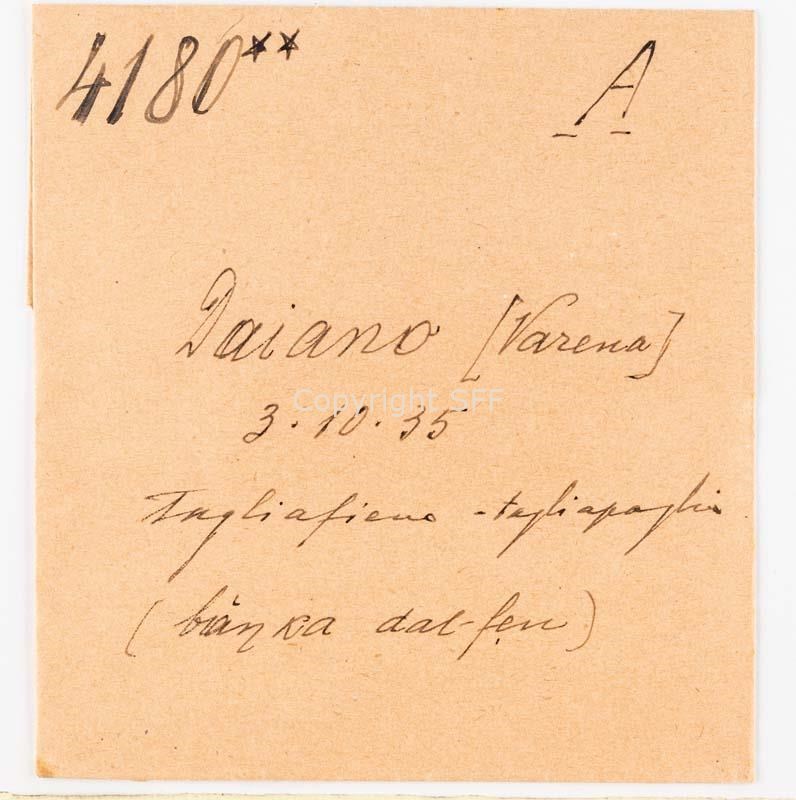 4180** A
Daiano [Varena]
Copyright SFF
3.10.35
Tagliafieno - tagliapaglia
(báŋka dal-fẹn)